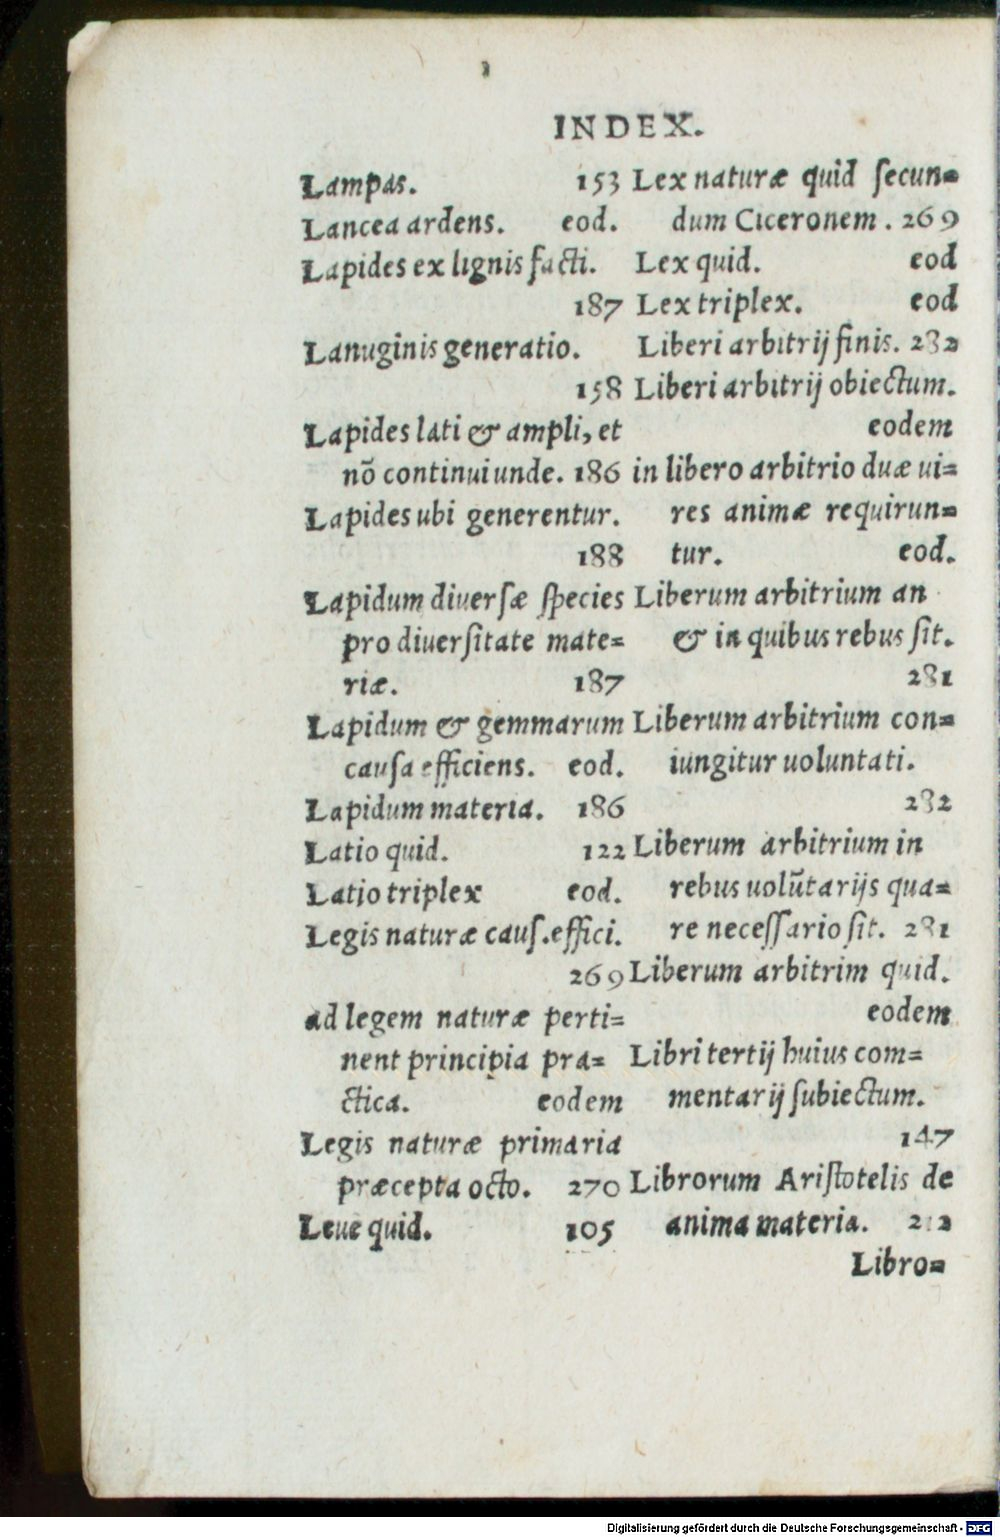 INDEX.
Lampas. 153
Lancea ardens. eod.
Lapides ex lignis facti.
187
Lanuginis generatio.
158
Lapides lati & ampli, et
nō continui unde. 186
Lapides ubi generentur.
188
Lapidum diuersæ species
pro diuersitate mate=
riæ. 187
Lapidum & gemmarum
causa efficiens. eod.
Lapidum materia. 186
Latio quid. 122
Latio triplex eod.
Legis naturæ caus.effici.
269
ad legem naturæ perti=
nent principia pra=
ctica. eodem
Legis naturæ primaria
præcepta octo. 270
Leue quid. 105
Lex naturæ quid secun=
dum Ciceronem. 269
Lex quid. eod
Lex triplex. eod
Liberi arbitrij finis. 282
Liberi arbitrij obiectum.
eodem
in libero arbitrio duæ ui=
res animæ requirun=
tur. eod.
Liberum arbitrium an
& in quibus rebus sit.
281
Liberum arbitrium con=
iungitur uoluntati.
282
Liberum arbitrium in
rebus uolūtarijs qua=
re necessario sit. 281
Liberum arbitrim quid.
eodem
Libri tertij huius com=
mentarij subiectum.
147
Librorum Aristotelis de
anima materia.
Libro=
Digitalisierung gefördert durch die Deutsche Forschungsgemeinschaft - DFG